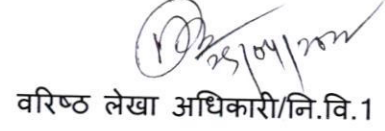 25/04/2022
वरिष्ठ लेखा अधिकारी/नि.वि.1